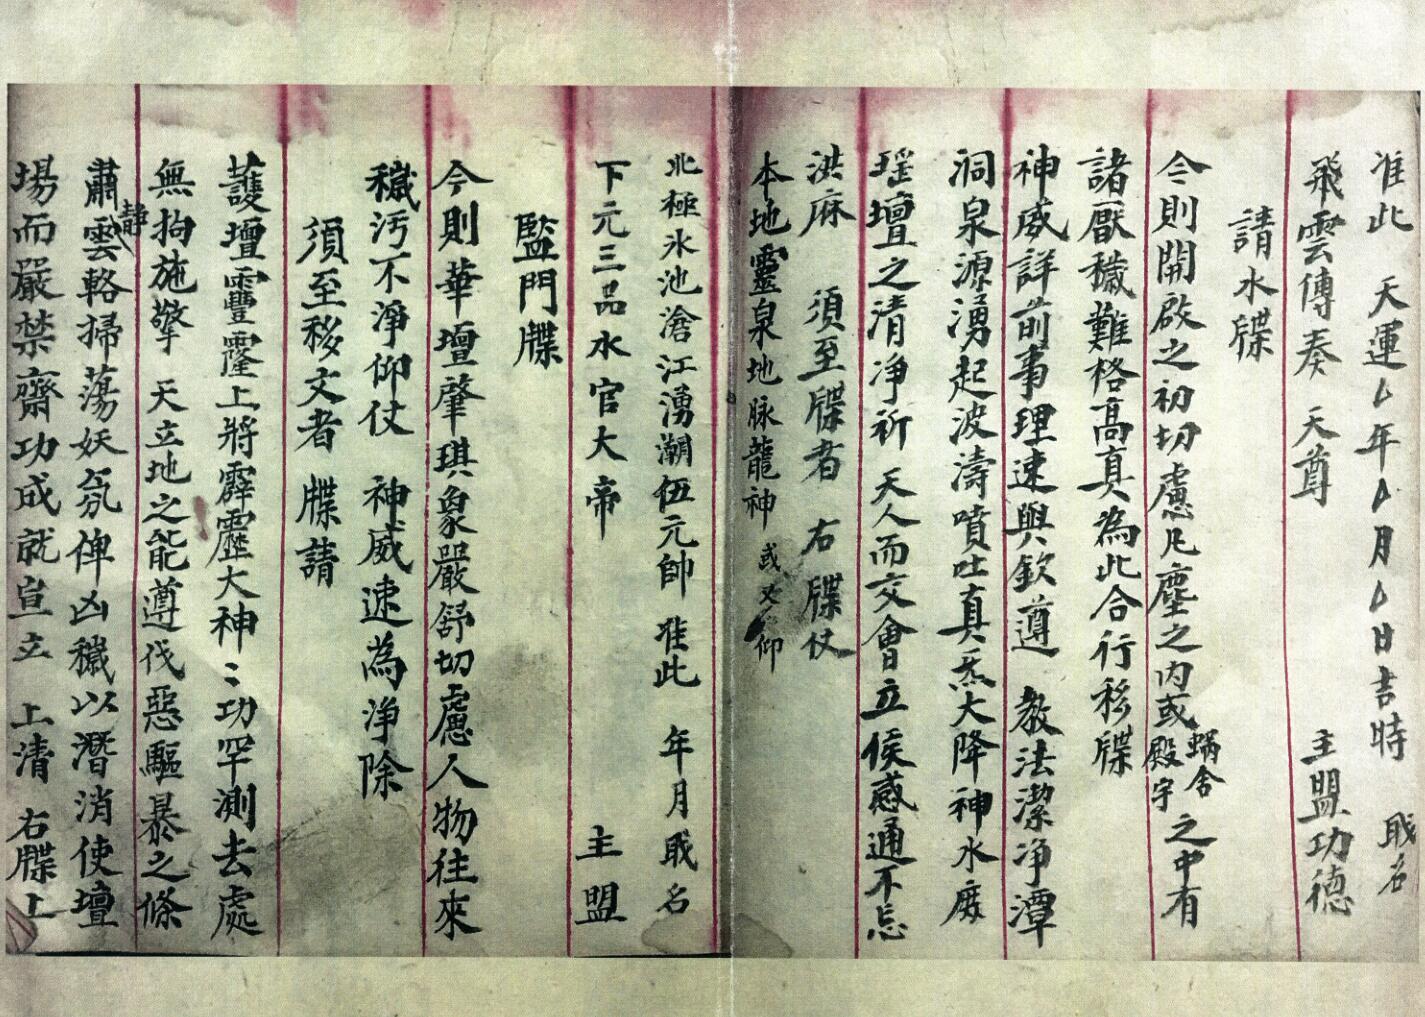 准此 天運△年△月△日吉時 戢名
飛雲傳奏 天尊 主盟功德
請水牒
今則開啟之初切慮凡塵之內或蝸舍殿宇之中有
諸厭穢難格高真為此合行移牒
神威詳前事理速與欽遵 教法潔净潭
洞泉源湧起波濤噴吐真炁大降神水廕
瑤壇之清净祈 天人而交會日立俟感通不忘
洪庥 須至牒者 右牒仗
本地靈泉地脉龍神 或又仰
北極氷池滄江湧潮伍元帥 准此 年月戢名
下元三品水官大帝 主盟
監門牒
今則華壇肇琪象嚴舒切慮人物往來
穢汚不淨仰仗 神威速為淨除
須至移文者 牒請
護壇靊霳上將霹靂大神〻功罕測去處
無拘施擎 天立地之能遵伐惡驅暴之條
肅靜雲輅掃蕩妖氛俾凶穢以潛消使壇
場而嚴禁齋功成就宣立 上清 右牒上